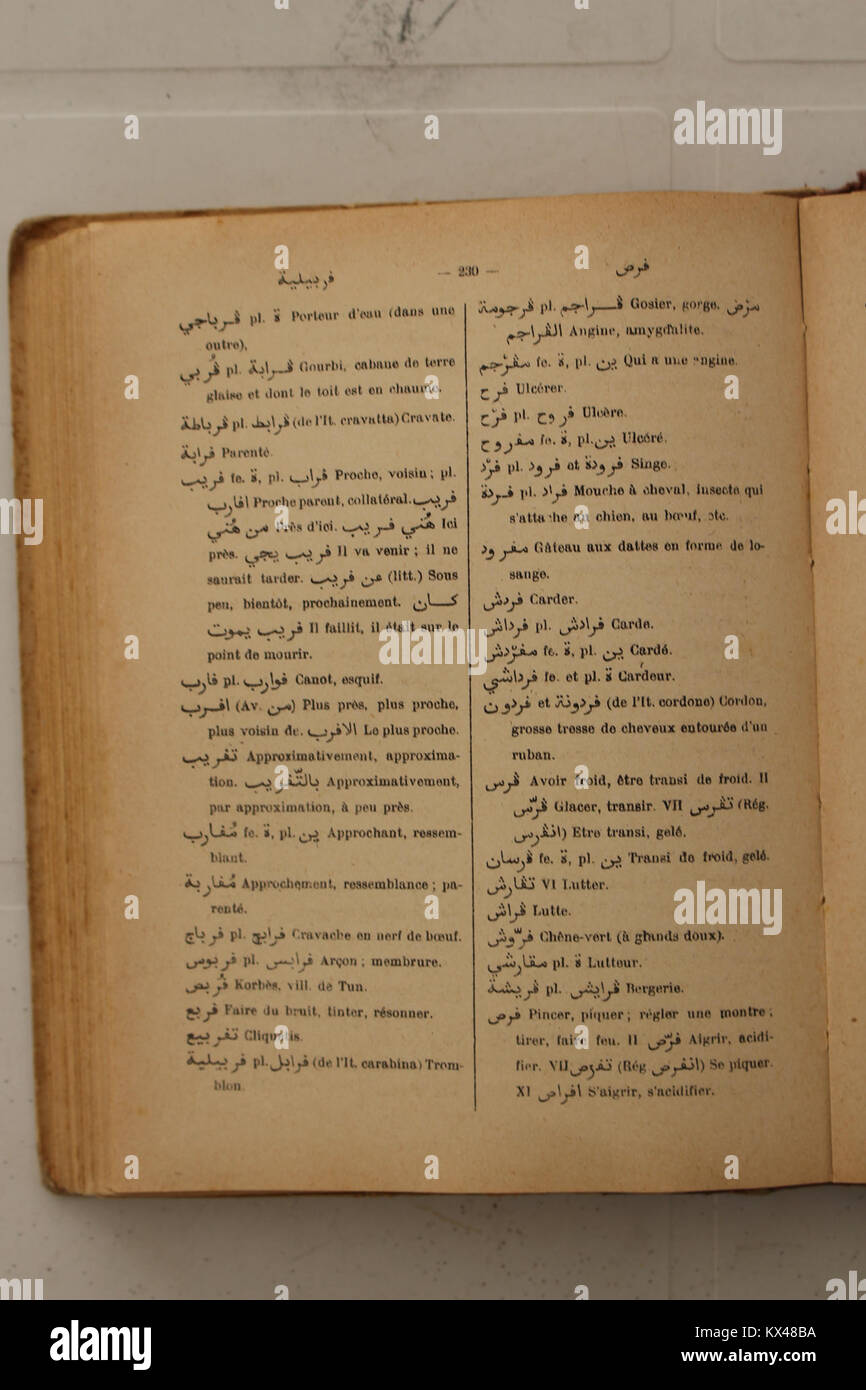 فربيلية — 230 — فرص
فرباجي pl. ة Porteur d'eau (dans une
outre).
فُربي pl. فرابة Gourbi, cabane de terre
glaise et dont le toit est en chaume.
فرباطة pl. فرابط (de l'It. cravatta) Cravate.
فرابة Parenté.
فريب fe. ة, pl. فراب Proche, voisin; pl.
افارب Proche parent, collatéral. فريب
من هُني Près d'ici. هُني فريب Ici
près. فريب يجي Il va venir; il ne
saurait tarder. عن فريب (litt.) Sous
peu, bientôt, prochainement. كان
فريب يموت Il faillit, il était sur le
point de mourir.
فارب pl. فوارب Canot, esquif.
افرب (Av. من) Plus près, plus proche,
plus voisin de. الافرب Le plus proche.
تفريب Approximativement, approxima-
tion. بالتّفريب Approximativement,
par approximation, à peu près.
مُفارب fe. ة, pl. ين Approchant, ressem-
blant.
مُفاربة Approchement, ressemblance; pa-
renté.
فرباج pl. فرابج Cravache en nerf de bœuf.
فربوس pl. فرابس Arçon; membrure.
فُربص Korbès, vill. de Tun.
فربع Faire du bruit, tinter, résonner.
تفربيع Cliquetis.
فربيلية pl. فرابل (de l'It. carabina) Trom-
blon.
فرجومة pl. فراجم Gosier, gorge. مرض
الفراجم Angine, amygdalite.
مفرجم fe. ة, pl. ين Qui a une angine.
فرح Ulcérer.
فرح pl. فروح Ulcère.
مفروح fe. ة, pl. ين Ulcéré.
فرد pl. فرود et فرودة Singe.
فردة pl. فراد Mouche à cheval, insecte qui
s'attache au chien, au bœuf, etc.
مفرود Gâteau aux dattes en forme de lo-
sange.
فردش Carder.
فرداش pl. فرادش Carde.
مفردش fe. ة, pl. ين Cardé.
فرداشي fe. et pl. ة Cardeur.
فردون et فردونة (de l'It. cordone) Cordon,
grosse tresse de cheveux entourée d'un
ruban.
فرس Avoir froid, être transi de froid. II
فرّس Glacer, transir. VII تفرس (Rég.
انفرس) Etre transi, gelé.
فرسان fe. ة, pl. ين Transi de froid, gelé.
تفارش VI Lutter.
فراش Lutte.
فرّوش Chêne-vert (à glands doux).
مفارشي pl. ة Lutteur.
فريشة pl. فرايش Bergerie.
فرص Pincer, piquer; régler une montre;
tirer, faire feu. II فرّص Aigrir, acidi-
fier. VII تفرص (Rég انفرص) Se piquer.
XI افراص S'aigrir, s'acidifier.
alamy
Image ID: KX48BA
www.alamy.com